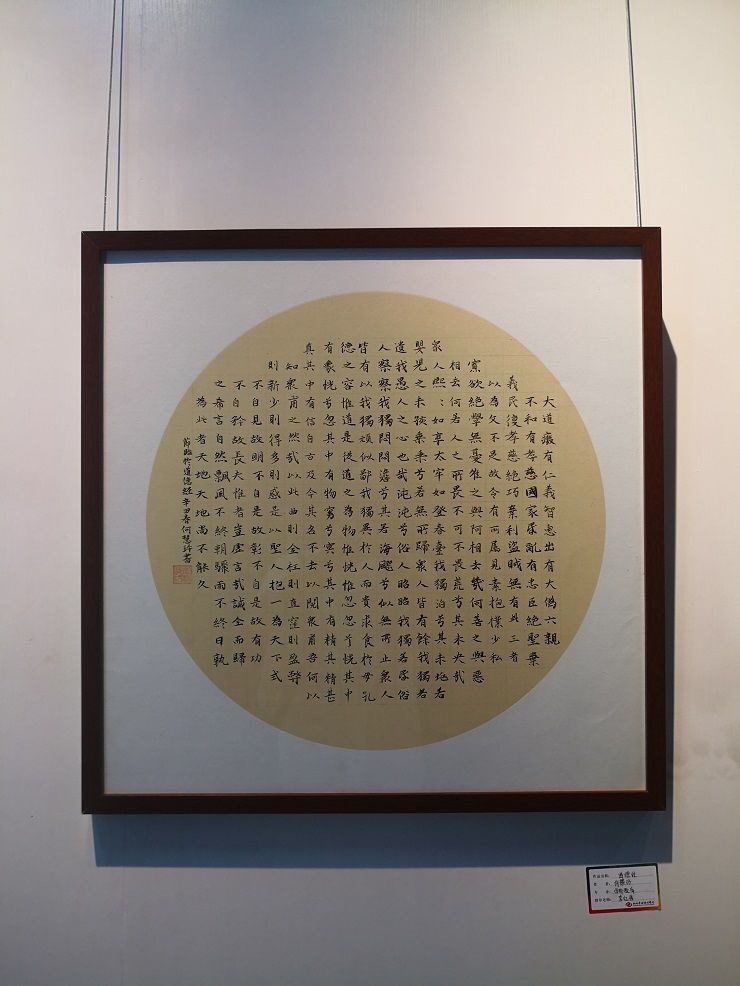 大道癈有仁義智惠出有大僞六親
不和有孝慈國家昏亂有忠臣絕聖棄
義民復孝慈絕巧棄利盜賊無有此三者
以為文不足故令有所屬見素抱樸少私
寡欲絕學無憂唯之與阿相去幾何善之與惡
相去何若人之所畏不可不畏荒兮其未央哉
衆人熙：如享太牢如登春臺我獨泊兮其未兆若
嬰兒之未孩乘乘兮若無所歸衆人皆有餘我獨若
遺我愚人之心也哉沌沌兮俗人昭昭我獨若昏俗
人察察我獨悶悶澹兮其若海飂兮似無所止衆人
皆有以我獨頑似鄙我獨異於人而貴求食於母孔
德之容惟道是從道之為物惟恍惟忽忽兮恍其中
有象恍兮忽其中有物窈兮冥兮其中有精其精甚
真其中有信自古及今其名不去以閱衆甫吾何以
知衆甫之然哉以此曲則全枉則直窪則盈弊
則新少則得多則惑是以聖人抱一為天下式
不自見故明不自是故彰不自是故有功
不自矜故長夫惟者豈虛言哉誠全而歸
之希言自然飄風不終朝驟雨不終日孰
為此者天地天地尚不能久
節臨於道德經辛丑春何慧玲書
作品名称：道德经
作者：何慧玲